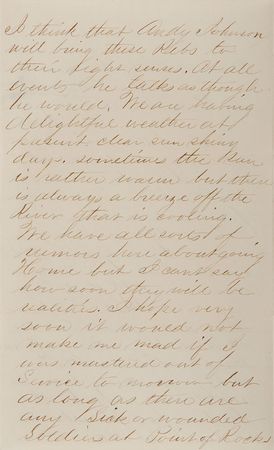 I think that Andy Johnson
will bring these Rebs to
their right senses. At all
events he talks as though
he would. We are having
delightful weather at
present. clear sun shiny
days. sometimes the Sun
is rather warm but there
is always a breeze off the
River that is cooling.
We have all sorts of
rumors here about going
Home but I cant say
how soon they will be
realities. I hope very
soon it would not
make me mad if I
was mustered out of
Service to morrow but
as long as there are
any Sick or wounded
Soldiers at Point of Rocks